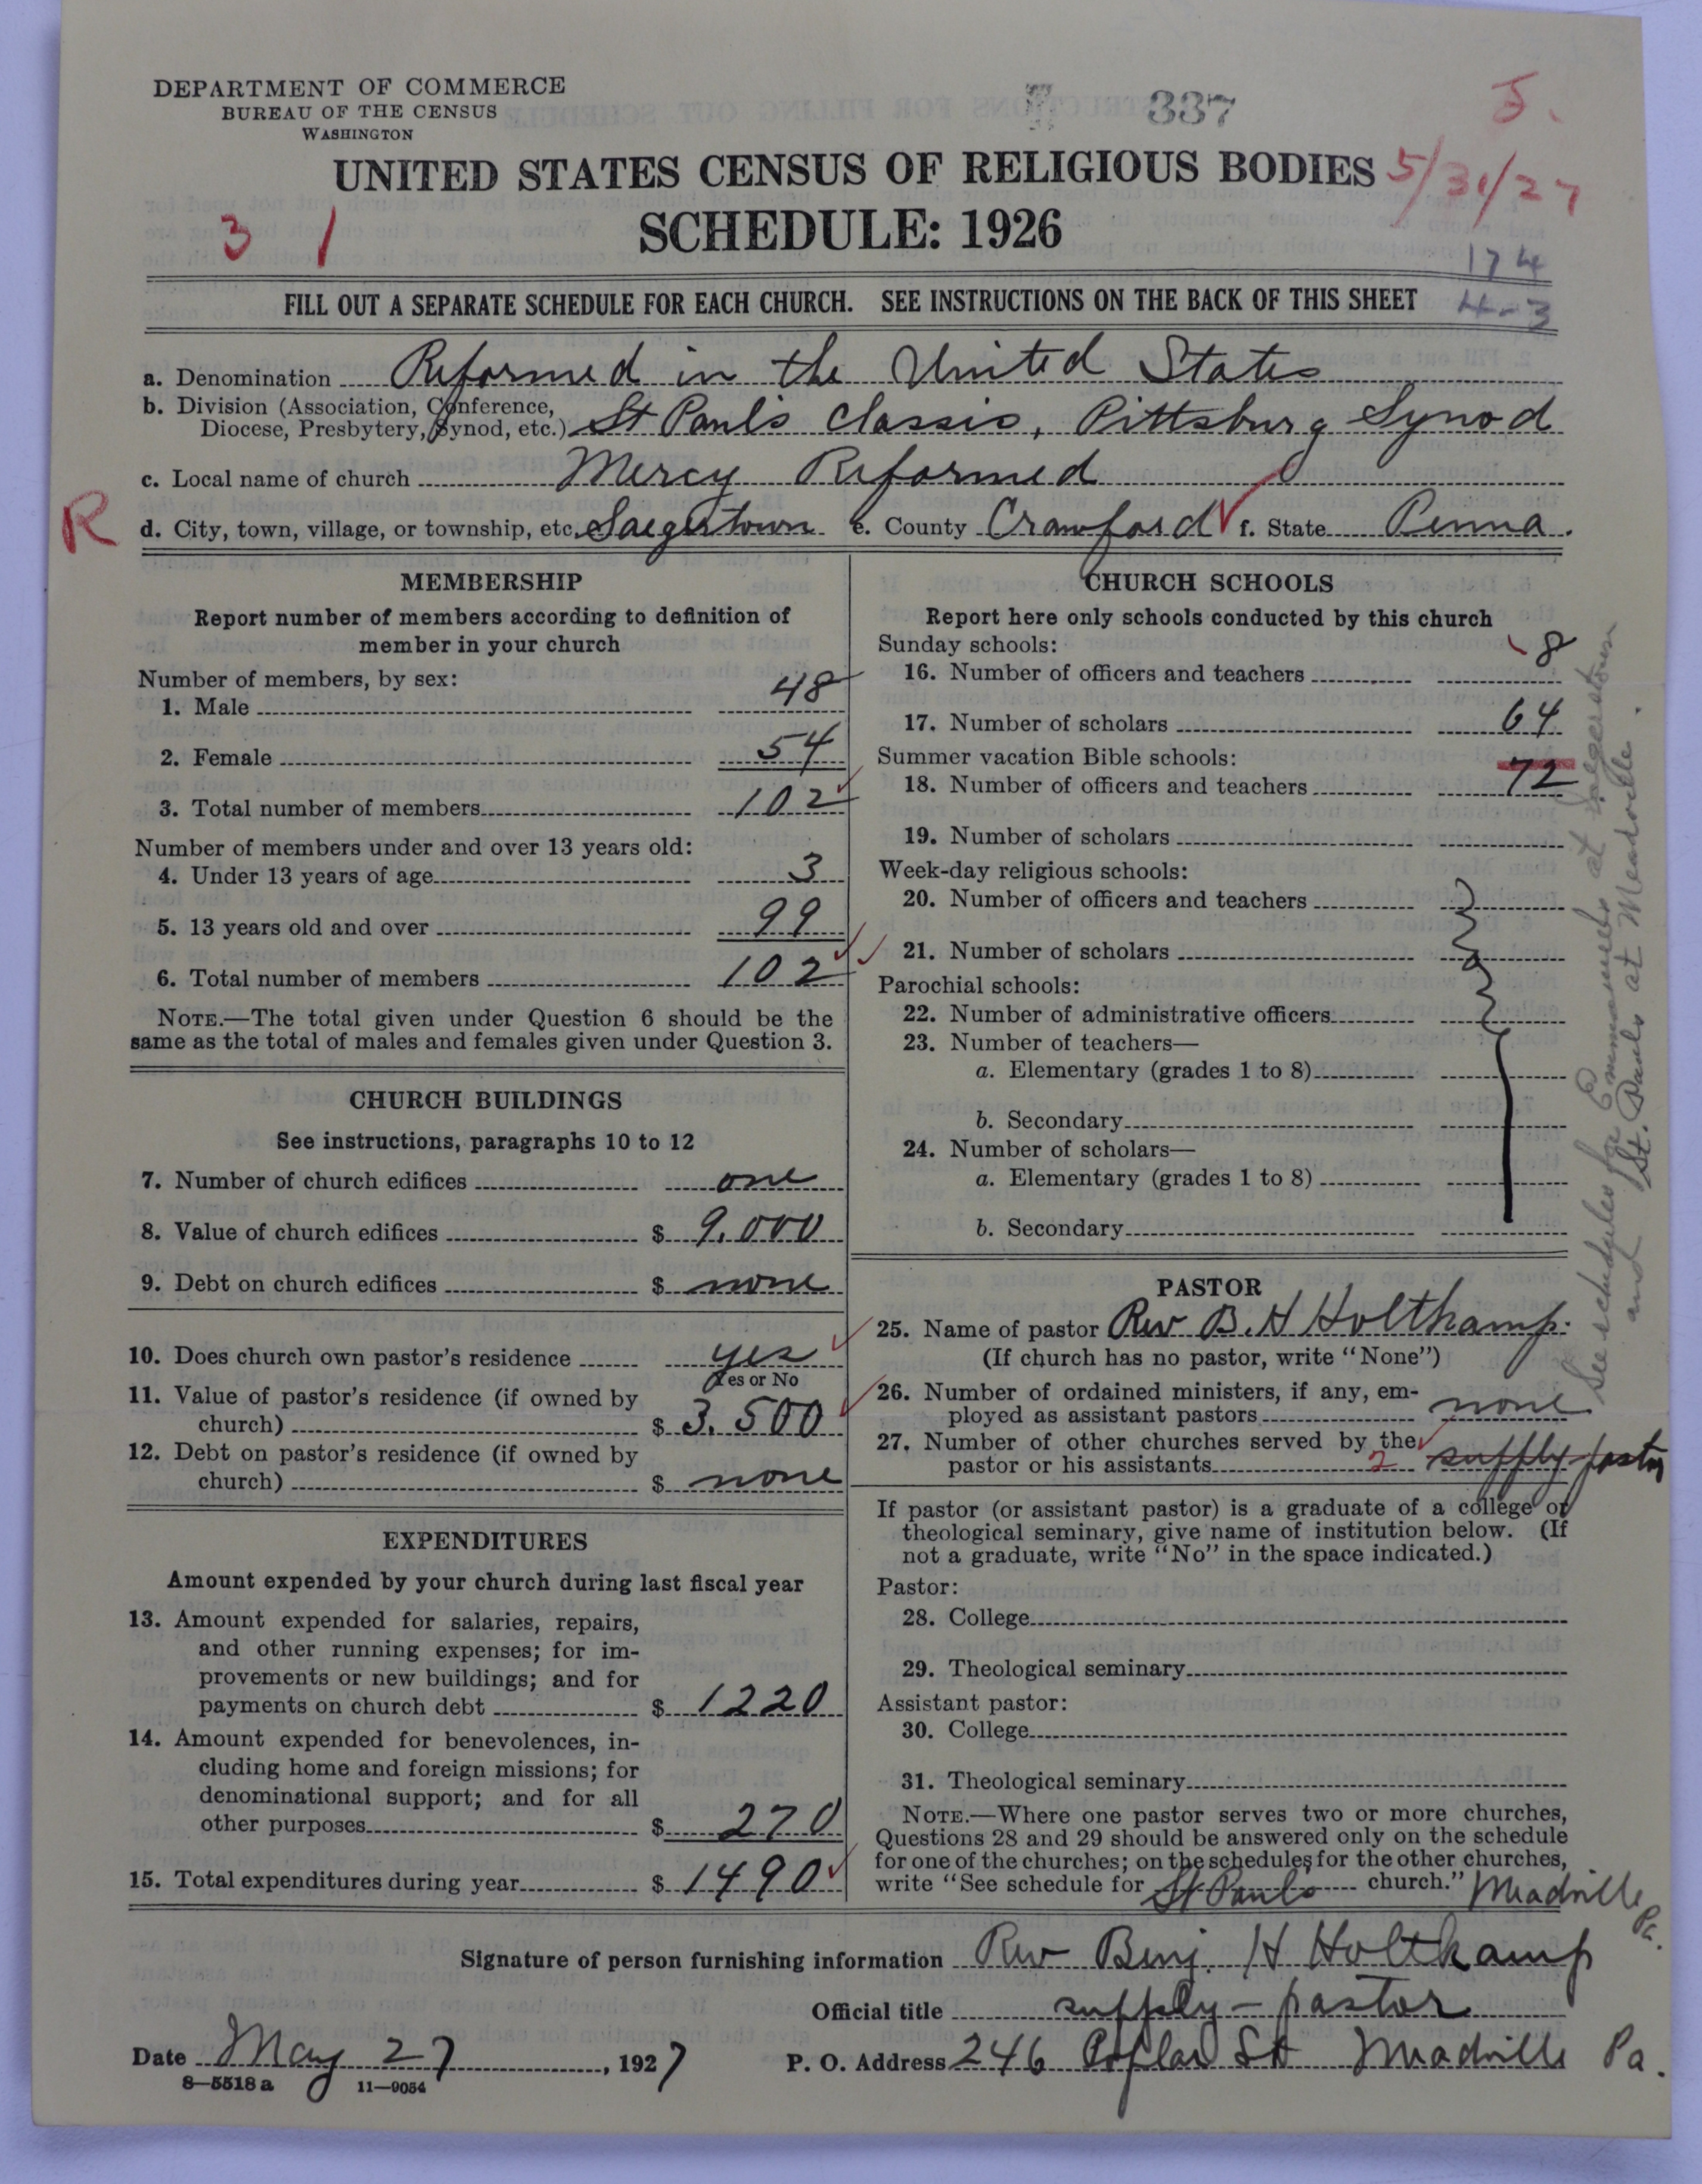 DEPARTMENT OF COMMERCE
BUREAU OF THE CENSUS
WASHINGTON
337
5.
UNITED STATES CENSUS OF RELIGIOUS BODIES
5/31/27
SCHEDULE: 1926
3 1
174
FILL OUT A SEPARATE SCHEDULE FOR EACH CHURCH. SEE INSTRUCTIONS ON THE BACK OF THIS SHEET
4-3
a. Denomination Reformed in the United States
b. Division (Association, Conference,
Diocese, Presbytery, Synod, etc.) St Paul's Classis, Pittsburg Synod
c. Local name of church Mercy Reformed
R
d. City, town, village, or township, etc. Saegertown e. County Crawford f. State Penna.
MEMBERSHIP
Report number of members according to definition of
member in your church
Number of members, by sex:
1. Male 48
2. Female 54
3. Total number of members 102
Number of members under and over 13 years old:
4. Under 13 years of age 3
5. 13 years old and over 99
6. Total number of members 102
NOTE.—The total given under Question 6 should be the
same as the total of males and females given under Question 3.
CHURCH BUILDINGS
See instructions, paragraphs 10 to 12
7. Number of church edifices one
8. Value of church edifices $ 9.000
9. Debt on church edifices $ none
10. Does church own pastor's residence yes
Yes or No
11. Value of pastor's residence (if owned by
church) $ 3.500
12. Debt on pastor's residence (if owned by
church) $ none
EXPENDITURES
Amount expended by your church during last fiscal year
13. Amount expended for salaries, repairs,
and other running expenses; for im-
provements or new buildings; and for
payments on church debt $ 1220
14. Amount expended for benevolences, in-
cluding home and foreign missions; for
denominational support; and for all
other purposes $ 270
15. Total expenditures during year $ 1490
CHURCH SCHOOLS
Report here only schools conducted by this church
Sunday schools:
16. Number of officers and teachers 8
17. Number of scholars 64
Summer vacation Bible schools:
18. Number of officers and teachers 72
19. Number of scholars
Week-day religious schools:
20. Number of officers and teachers
21. Number of scholars
Parochial schools:
22. Number of administrative officers
23. Number of teachers—
a. Elementary (grades 1 to 8)
b. Secondary
24. Number of scholars—
a. Elementary (grades 1 to 8)
b. Secondary
PASTOR
25. Name of pastor Rev B. H Holtkamp.
(If church has no pastor, write "None")
26. Number of ordained ministers, if any, em-
ployed as assistant pastors none
27. Number of other churches served by the
pastor or his assistants 2 supply-pastor
If pastor (or assistant pastor) is a graduate of a college or
theological seminary, give name of institution below. (If
not a graduate, write "No" in the space indicated.)
Pastor:
28. College
29. Theological seminary
Assistant pastor:
30. College
31. Theological seminary
NOTE.—Where one pastor serves two or more churches,
Questions 28 and 29 should be answered only on the schedule
for one of the churches; on the schedules for the other churches,
write "See schedule for St Pauls church." Meadville Pa.
See schedules for Emmanuels at Saegerstown
and St. Pauls at Meadville.
Signature of person furnishing information Rev Benj. H Holtkamp
Official title supply-pastor
Date May 27, 1927
P. O. Address 246 Poplar St Meadville Pa.
8—5518 a 11—9054